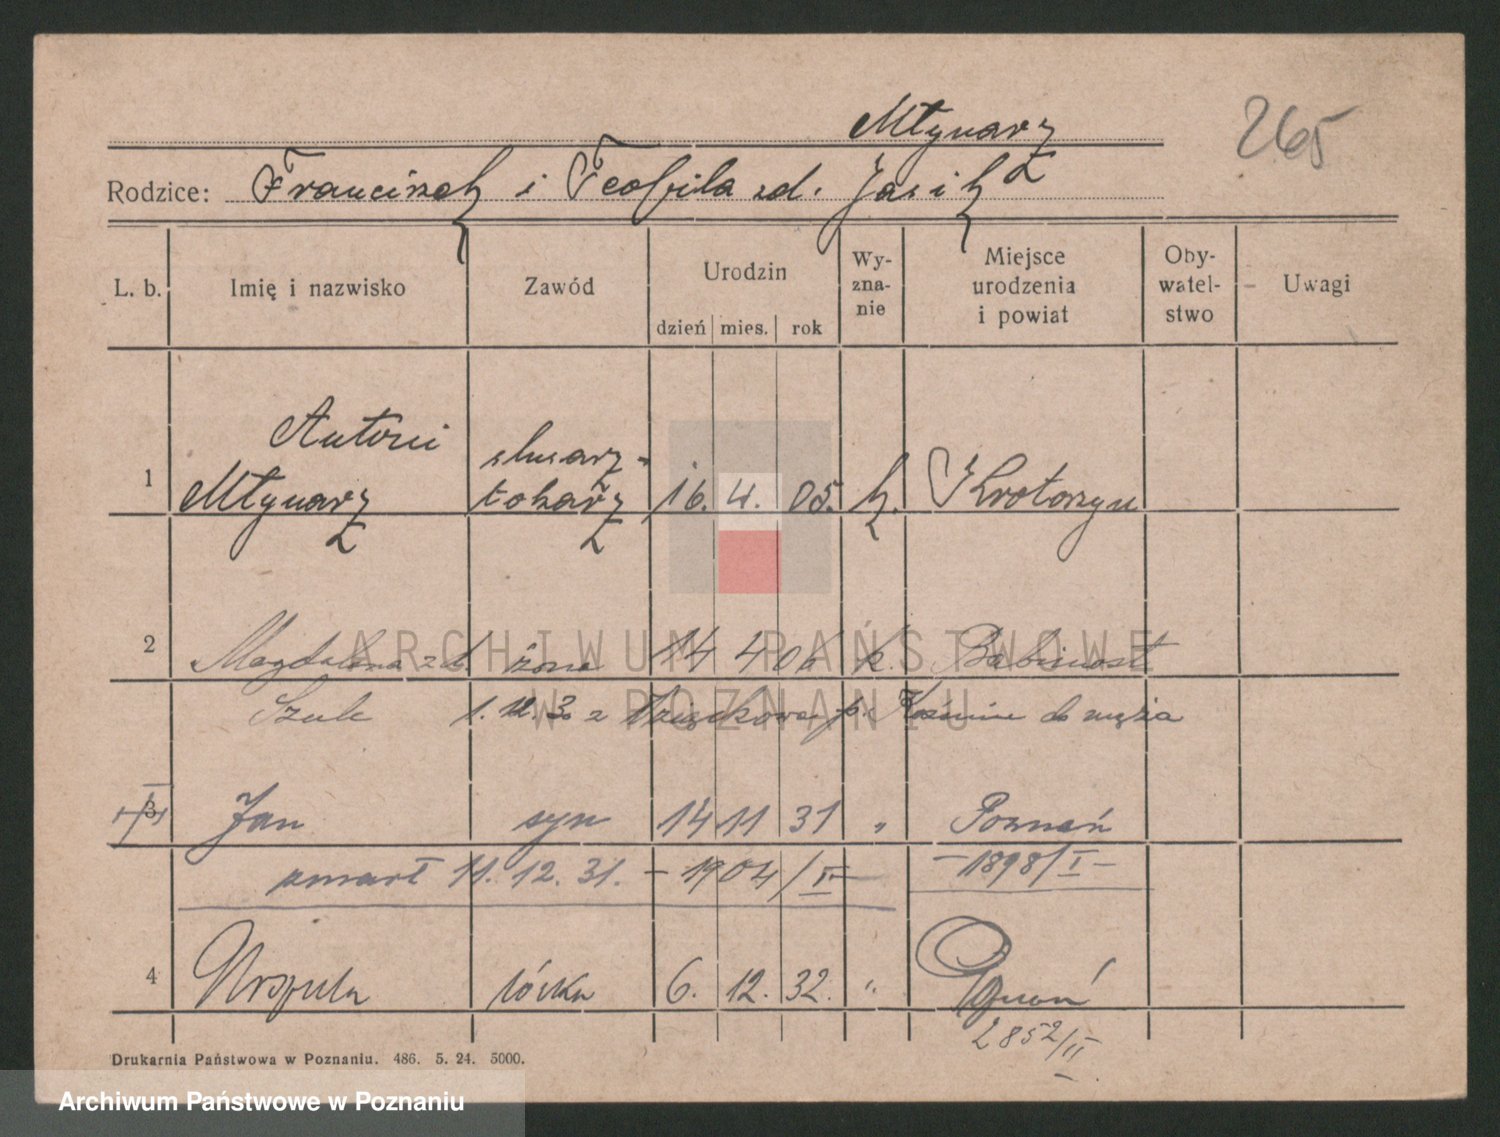 Młynarz
265
Rodzice: Franciszek i Teofila zd. Jasik
L. b. Imię i nazwisko Zawód Urodzin Wy-zna-nie Miejsce urodzenia i powiat Oby-watel-stwo Uwagi
dzień mies. rok
Antoni ślusarz-
1 Młynarz tokarz 16. 4. 05. k. Krotoszyn
2 Magdalena z d. żona 14 4 06 k. Babimost
Szulc 1. 12. 3 z p. Koźmin do męża
3 Jan syn 14 11 31 " Poznań
zmarł 11. 12. 31. - 1904/II - - 1898/I -
4 Urszula córka 6. 12. 32. " Poznań
2852/II
Drukarnia Państwowa w Poznaniu. 486. 5. 24. 5000.
ARCHIWUM PAŃSTWOWE
W POZNANIU
Archiwum Państwowe w Poznaniu